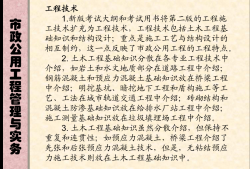 市政公用工程管理与实务
工程技术
1.新版考试大纲和考试用书将第二版的工程施
工技术扩充为工程技术。工程技术包括土木工程基
础知识和结构设计；重点是施工工艺与结构设计的
相互制约。这一点反映了市政公用工程的工程特点。
2.土木工程基础知识分散在各专业工程技术中
介绍。如岩土和水文地质部分在道路工程中介绍；
钢筋混凝土和预应力混凝土基础知识在桥梁工程
中介绍；明挖法、暗挖地下工程和盾构施工等工
艺、工法在城市轨道交通工程中介绍；砖砌结构和
混凝土防渗基础知识在给排水厂站工程中介绍；
施工测量基础知识在垃圾填埋场工程中介绍。
3.土木工程基础知识虽然分散介绍，但保持不
重复和连贯性；如预应力混凝土，桥梁工程介绍了
先张和后张预应力混凝土技术。但是，无粘结预应
力施工技术则放在土木工程基础知识中。